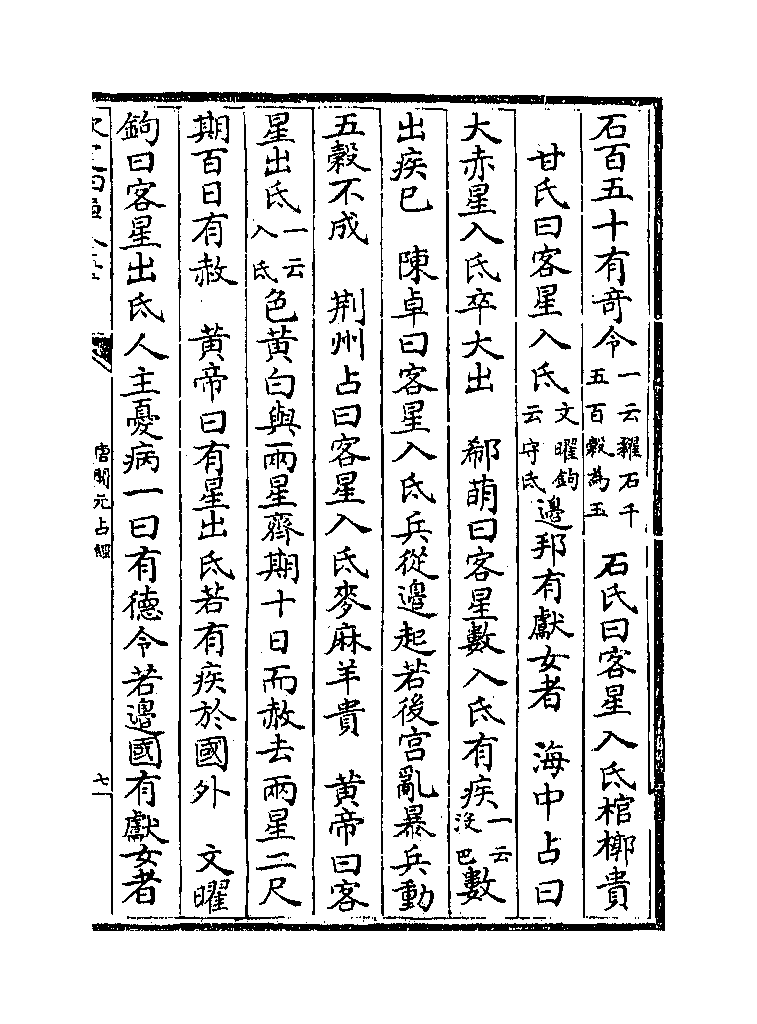 石百五十有奇令一云糴石千五百穀為五　石氏曰客星入氐棺槨貴
甘氏曰客星入氐文曜鉤云守氐邉邦有獻女者　海中占曰
大赤星入氐卒大出　郗萌曰客星數入氐有疾一云沒巴數
出疾已　陳卓曰客星入氐兵從邉起若後宫亂暴兵動
五穀不成　荆州占曰客星入氐麥麻羊貴　黄帝曰客
星出氐一云入氐色黄白與兩星齊期十日而赦去兩星二尺
期百日有赦　黄帝曰有星出氐若有疾於國外　文曜
鉤曰客星出氐人主憂病一曰有德令若邉國有獻女者
唐開元占經
七